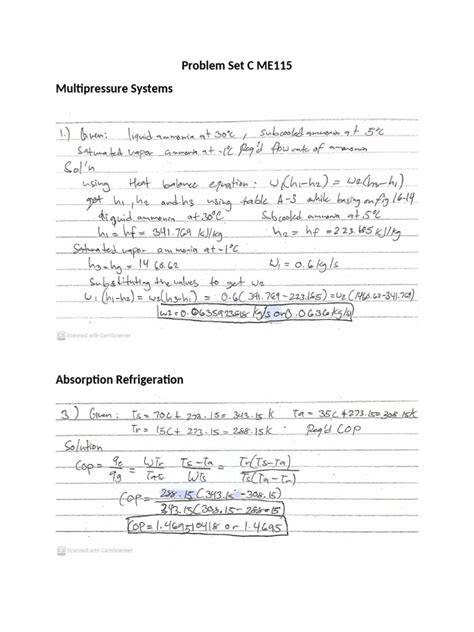 Problem Set C ME115
Multipressure Systems
1.) Given: liquid ammonia at 30°C, subcooled ammonia at 5°C
Saturated vapor ammonia at -1°C Req'd flow rate of ammonia
Sol'n
using Heat balance equation: w1(h1-h2) = w2(h3-h1)
get h1, h2 and h3 using table A-3 while basing on fig 16-14
liquid ammonia at 30°C Subcooled ammonia at 5°C
h1 = hf = 341.769 kJ/kg h2 = hf = 223.185 kJ/kg
Saturated vapor ammonia at -1°C
h3 = hg = 1460.62 w1 = 0.6 kg/s
Substituting the values to get w2
w1(h1-h2) = w2(h3-h1) = 0.6(341.769-223.185) = w2(1460.62-341.769)
w2 = 0.0635923818 kg/s or 0.0636 kg/s
Scanned with CamScanner
Absorption Refrigeration
3) Given: Ts = 70C + 273.15 = 343.15 K Ta = 35C + 273.15 = 308.15K
Tr = 15C + 273.15 = 288.15 K Req'd COP
Solution
COP = qe/qg = WTr/Ta-Tr Ts-Ta/WTs = Tr(Ts-Ta)/Ts(Ta-Tr)
COP = 288.15(343.15-308.15)
343.15(308.15-288.15)
COP = 1.469510418 or 1.4695
Scanned with CamScanner